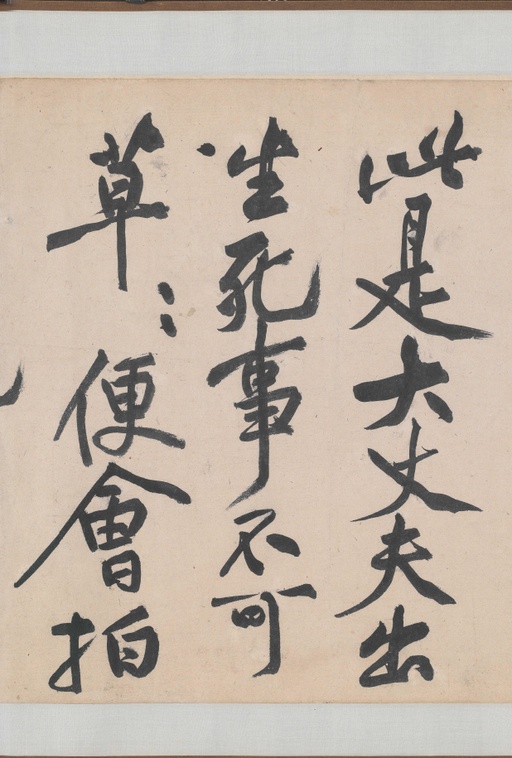 此是大丈夫出
生死事不可
草〻便會拍